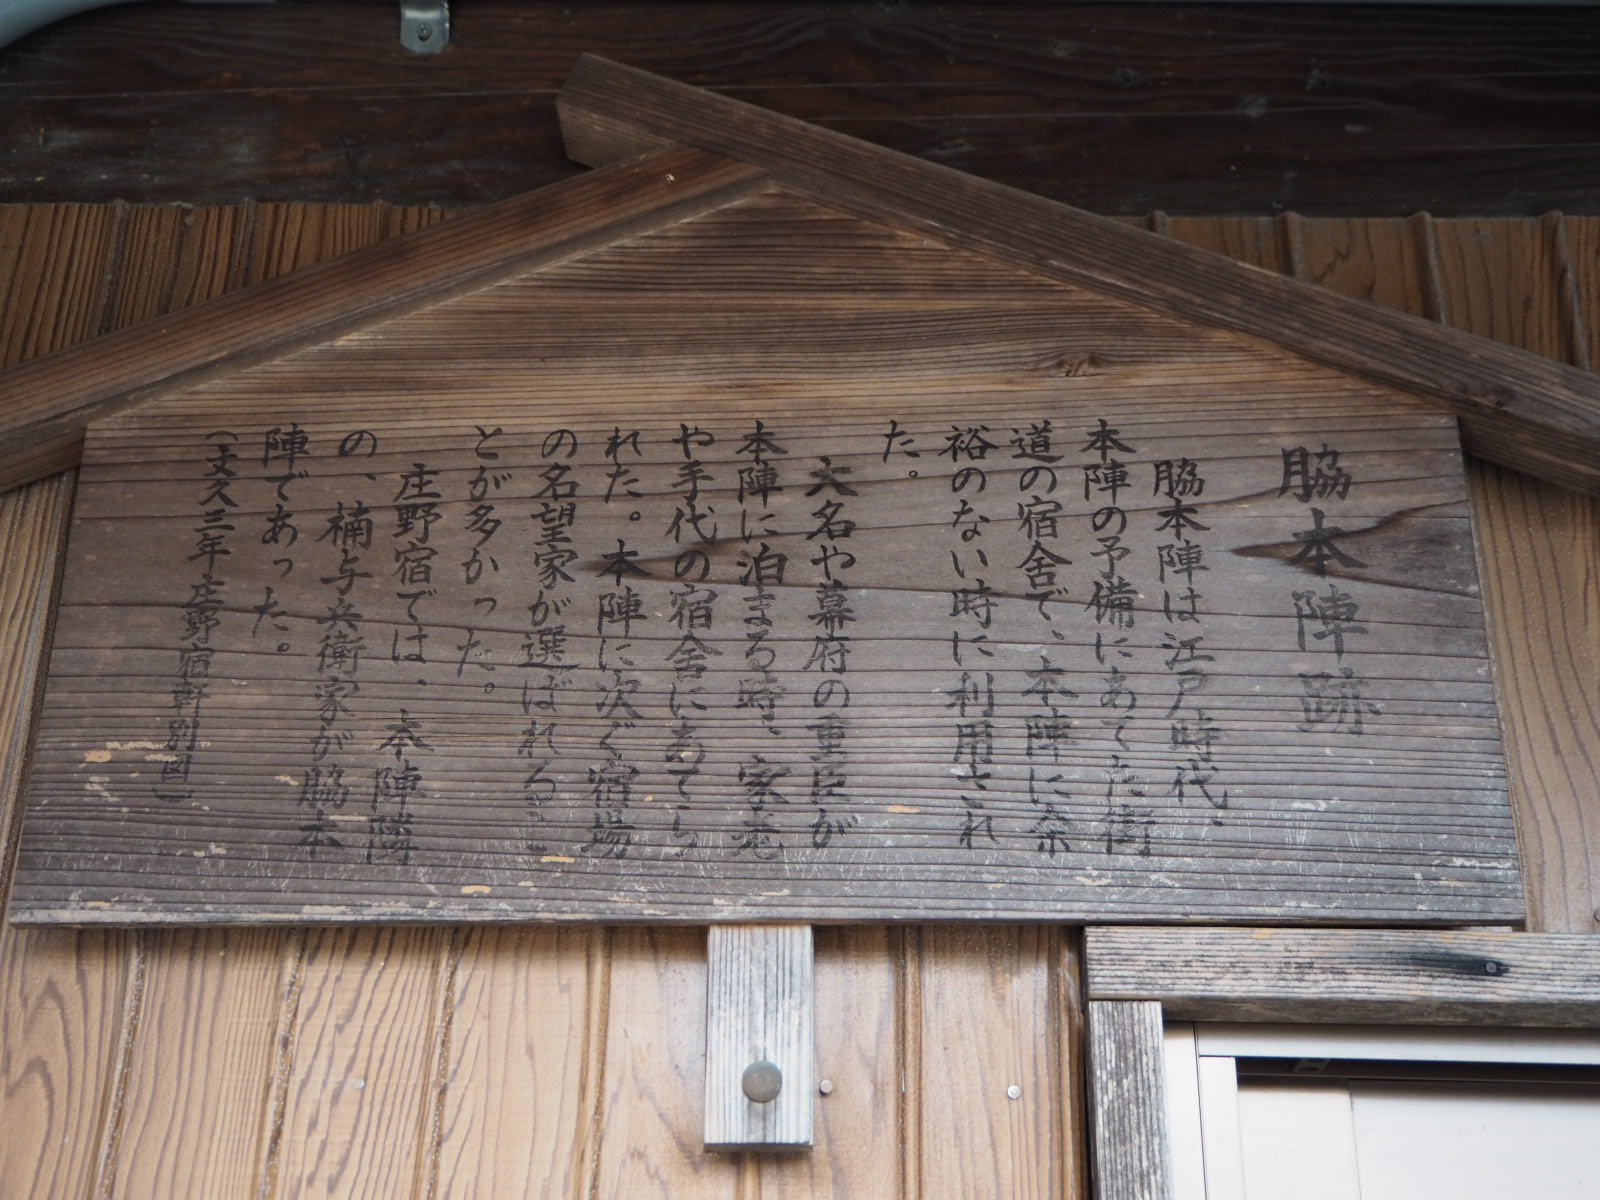 脇本陣跡
脇本陣は江戸時代、
本陣の予備にあてた街
道の宿舎で、本陣に余
裕のない時に利用され
た。
大名や幕府の重臣が
本陣に泊まる時、家老
や手代の宿舎にあてら
れた。本陣に次ぐ宿場
の名望家が選ばれるこ
とが多かった。
庄野宿では、本陣隣
の、楠与兵衛家が脇本
陣であった。
(文久三年庄野宿軒別図)